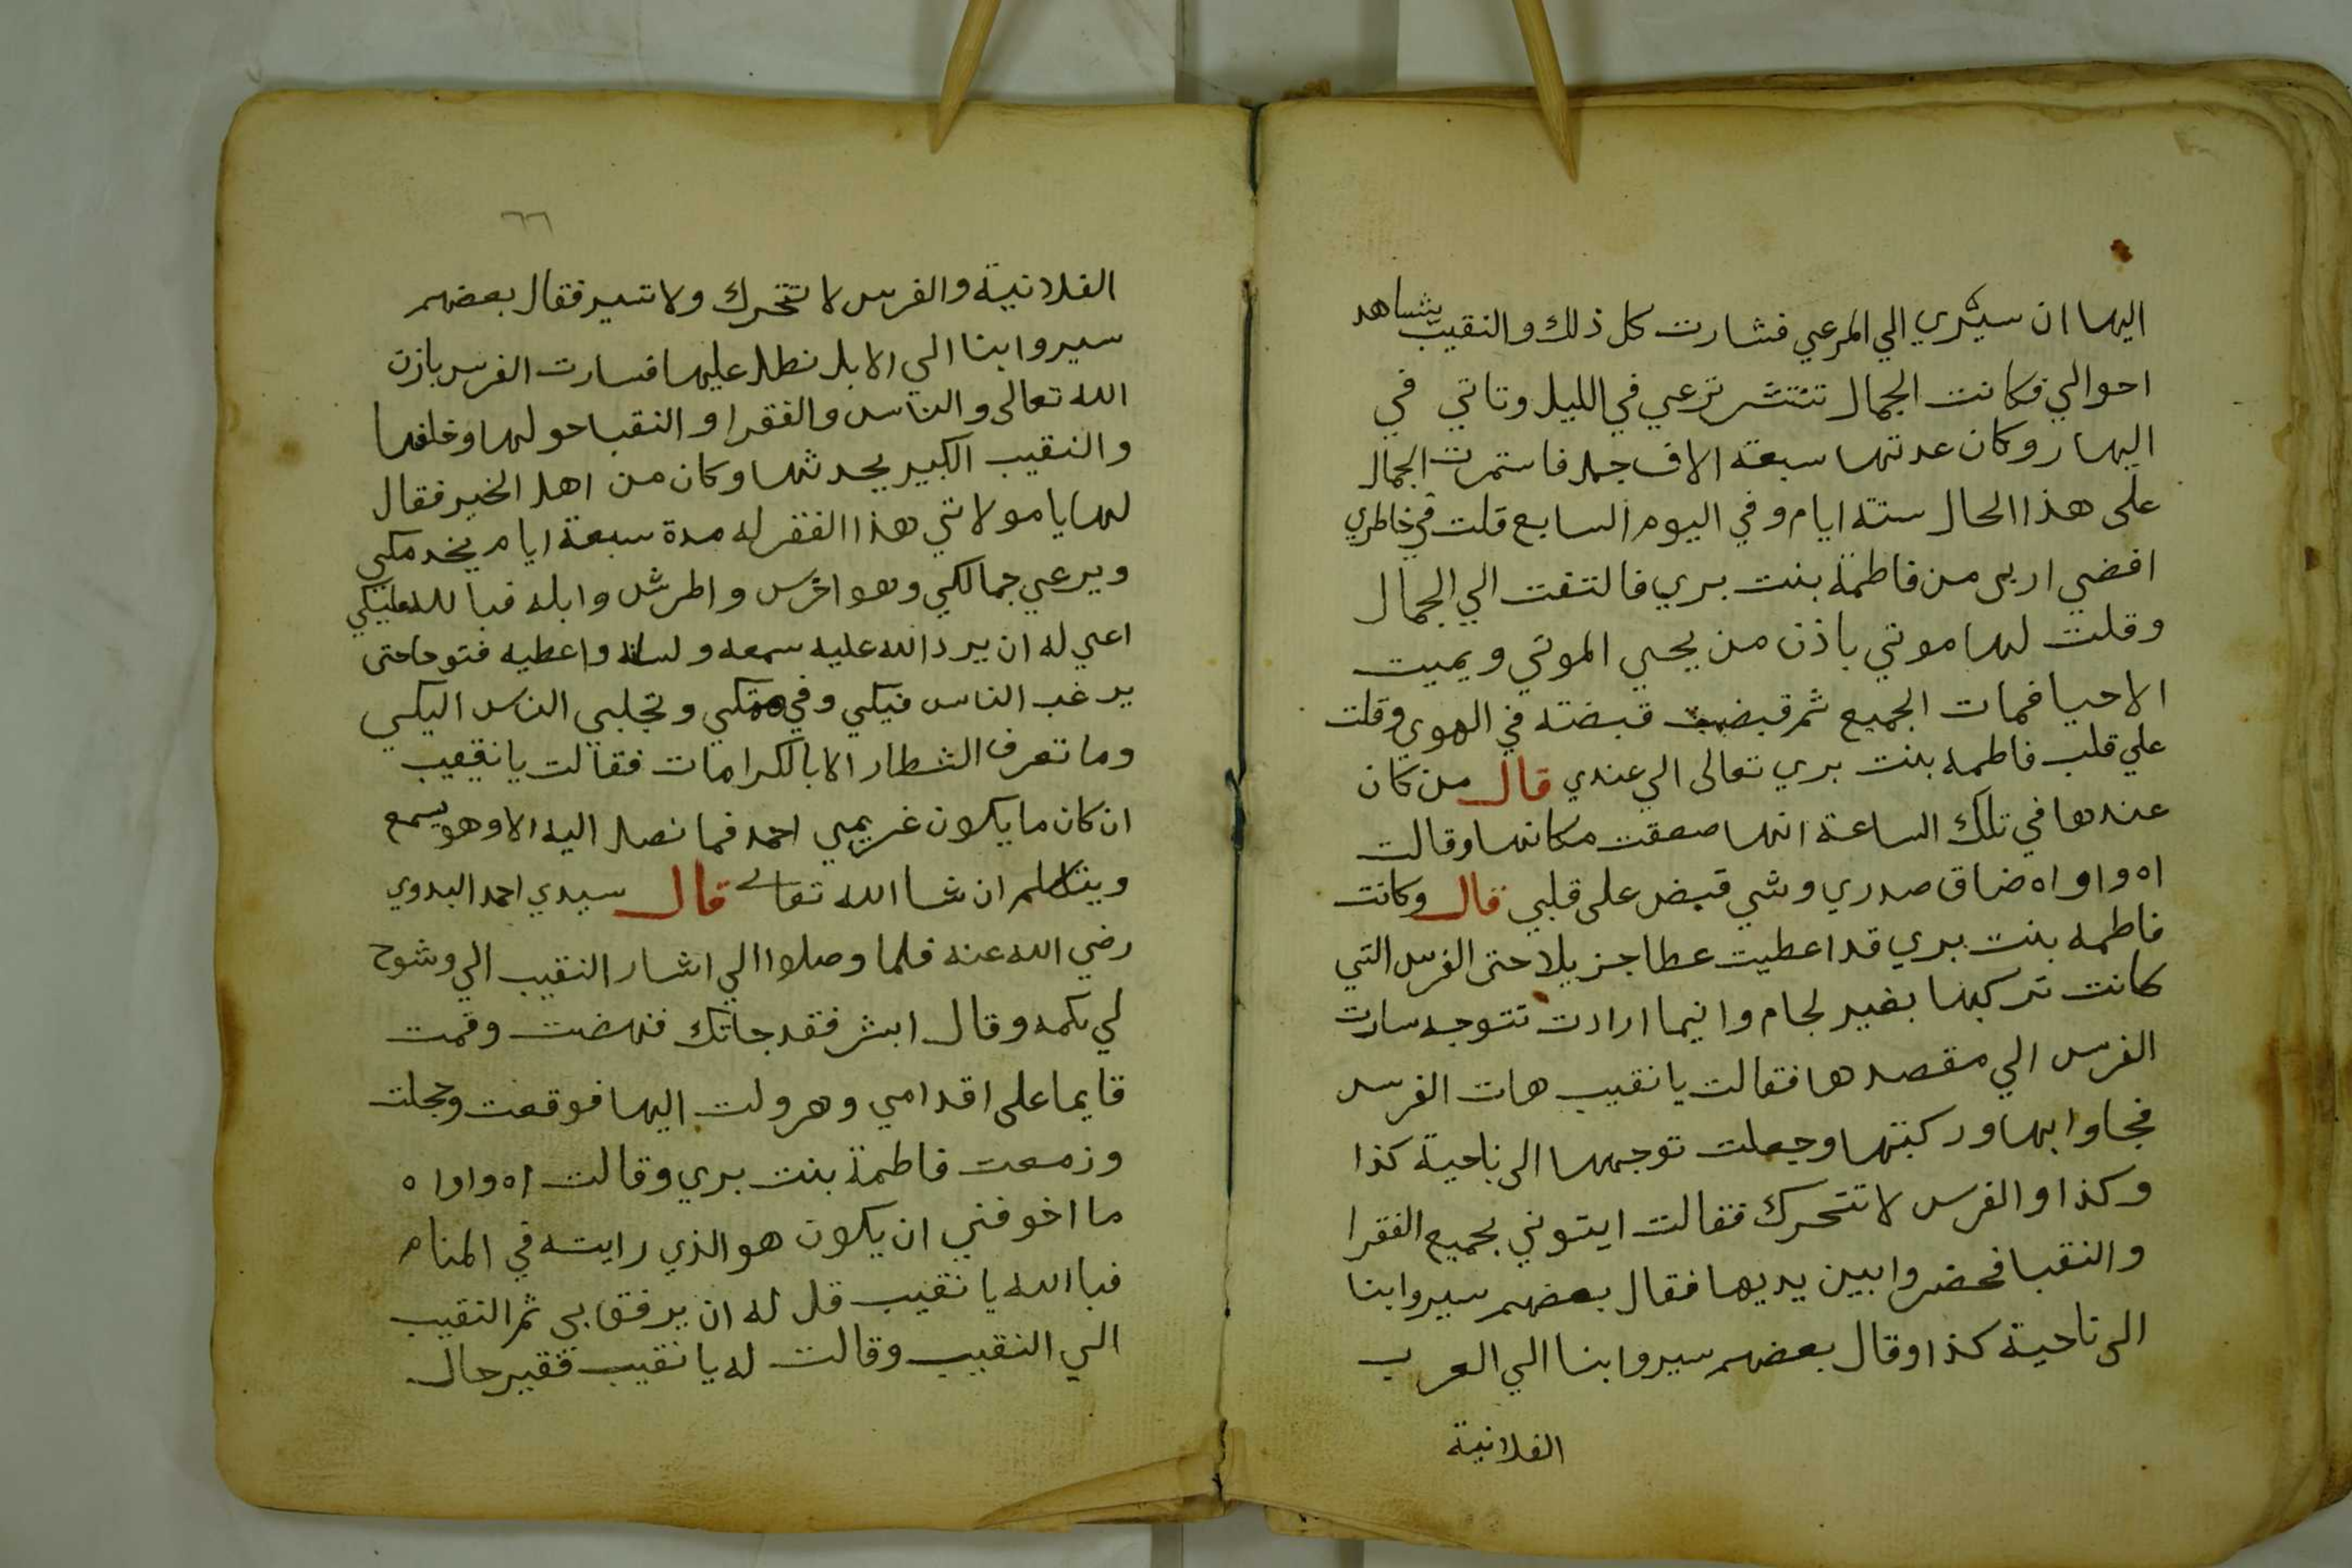 اليها ان سيري الي المرعي فشارت كل ذلك والنقيب يشاهد
احوالي فكانت الجمال تنتشر ترعي في الليل وتاتي في
اليهار وكان عدتها سبعة الاف جمل فاستمرت الجمال
على هذا الحال ستة ايام وفي اليوم السابع قلت في خاطري
افضي اربي من فاطمة بنت بري فالتفت الي الجمال
وقلت لها موتي باذن من يحيي الموتي ويميت
الاحيا فمات الجميع ثم قبضت قبضته في الهوي وقلت
علي قلب فاطمه بنت بري تعالى الي عندي قال من كان
عندها في تلك الساعة انها صعقت مكانها وقالت
اه واواه ضاق صدري وشي قبض على قلبي قال وكانت
فاطمه بنت بري قد اعطيت عطا جزيلا حتى الفرس التي
كانت تركبها بغير لجام واينما ارادت تتوجه سارت
الفرس الي مقصدها فقالت يا نقيب هات الفرس
فجاوا بها وركبتها وجعلت توجهها الى ناحية كذا
وكذا والفرس لا تتحرك فقالت ايتوني بجميع الفقرا
والنقبا فحضروا بين يديها فقال بعضهم سيروا بنا
الى ناحية كذا وقال بعضهم سيروا بنا الي العرب
الفلانية
٦٦
الفلانية والفرس لا تتحرك ولا تسير فقال بعضهم
سيروا بنا الي الابل نطل عليها فسارت الفرس باذن
الله تعالى والناس والفقرا والنقبا حولها وخلفها
والنقيب الكبير يحدثها وكان من اهل الخير فقال
لها يا مولاتي هذا الفقر له مدة سبعة ايام يخدمكي
ويرعي جمالكي وهو اخرس واطرش وابله فبالله عليكي
اعي له ان يرد الله عليه سمعه ولسانه واعطيه فتوحا حتى
يرغب الناس فيكي وفي وتجلبي الناس اليكي
وما تعرف الشطار الا بالكرامات فقالت يا نقيب
ان كان ما يكون غريمي احمد فما نصل اليه الا وهو يسمع
ويتكلم ان شا الله تعالى قال سيدي احمد البدوي
رضي الله عنه فلما وصلوا الي اشار النقيب الي وشوح
لي بكمه وقال ابشر فقد جاتك فنهضت وقمت
قايما على اقدامي وهرولت اليها فوقفت وجملت
وزمعت فاطمة بنت بري وقالت اه واواه
ما اخوفني ان يكون هو الذي رايته في المنام
فبا الله يا نقيب قل له ان يرفق بي ثم النقيب
الي النقيب وقالت له يا نقيب فقير حال